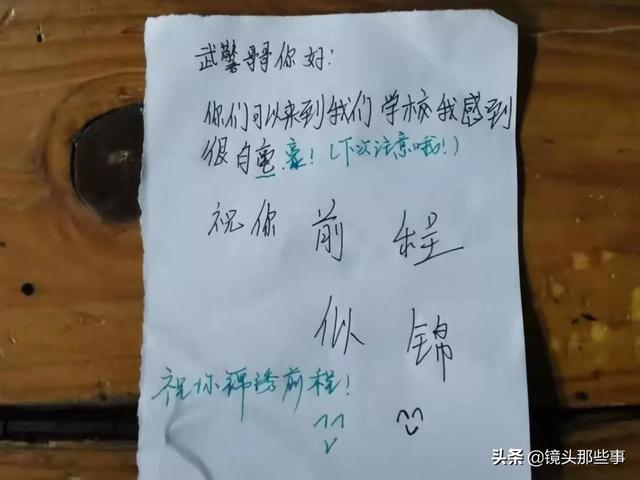 武警哥哥你好:
你们可以来到我们学校我感到
很自豪!(下次注意哦!)
祝你前程
似锦
祝你锦绣前程!
头条 @镜头那些事